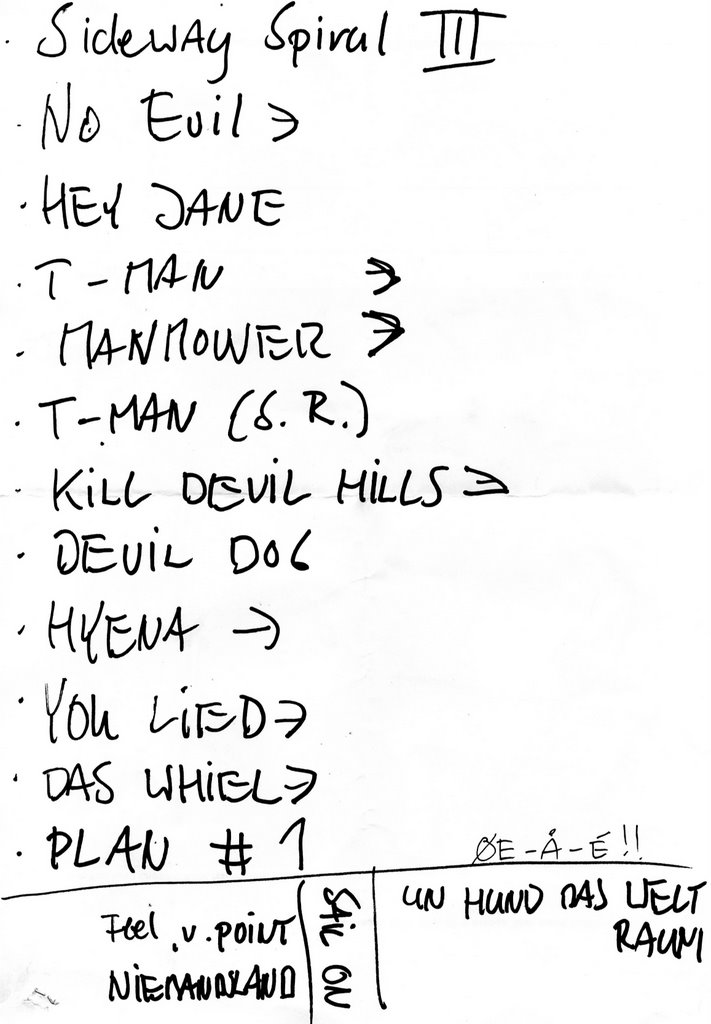 · Sideway Spiral III
· No Evil →
· HEY JANE
· T-MAN →
· MANMOWER →
· T-MAN (S.R.)
· KiLL DEViL HiLLS →
· DEViL DOG
· HYENA →
· YOU LiED →
· DAS WHiEL →
· PLAN # 1
ØE-Å-É!!
Feel .v. POiNT
NIEMANDLAND
SAIL ON
UN HUND DAS WELT
RAUM